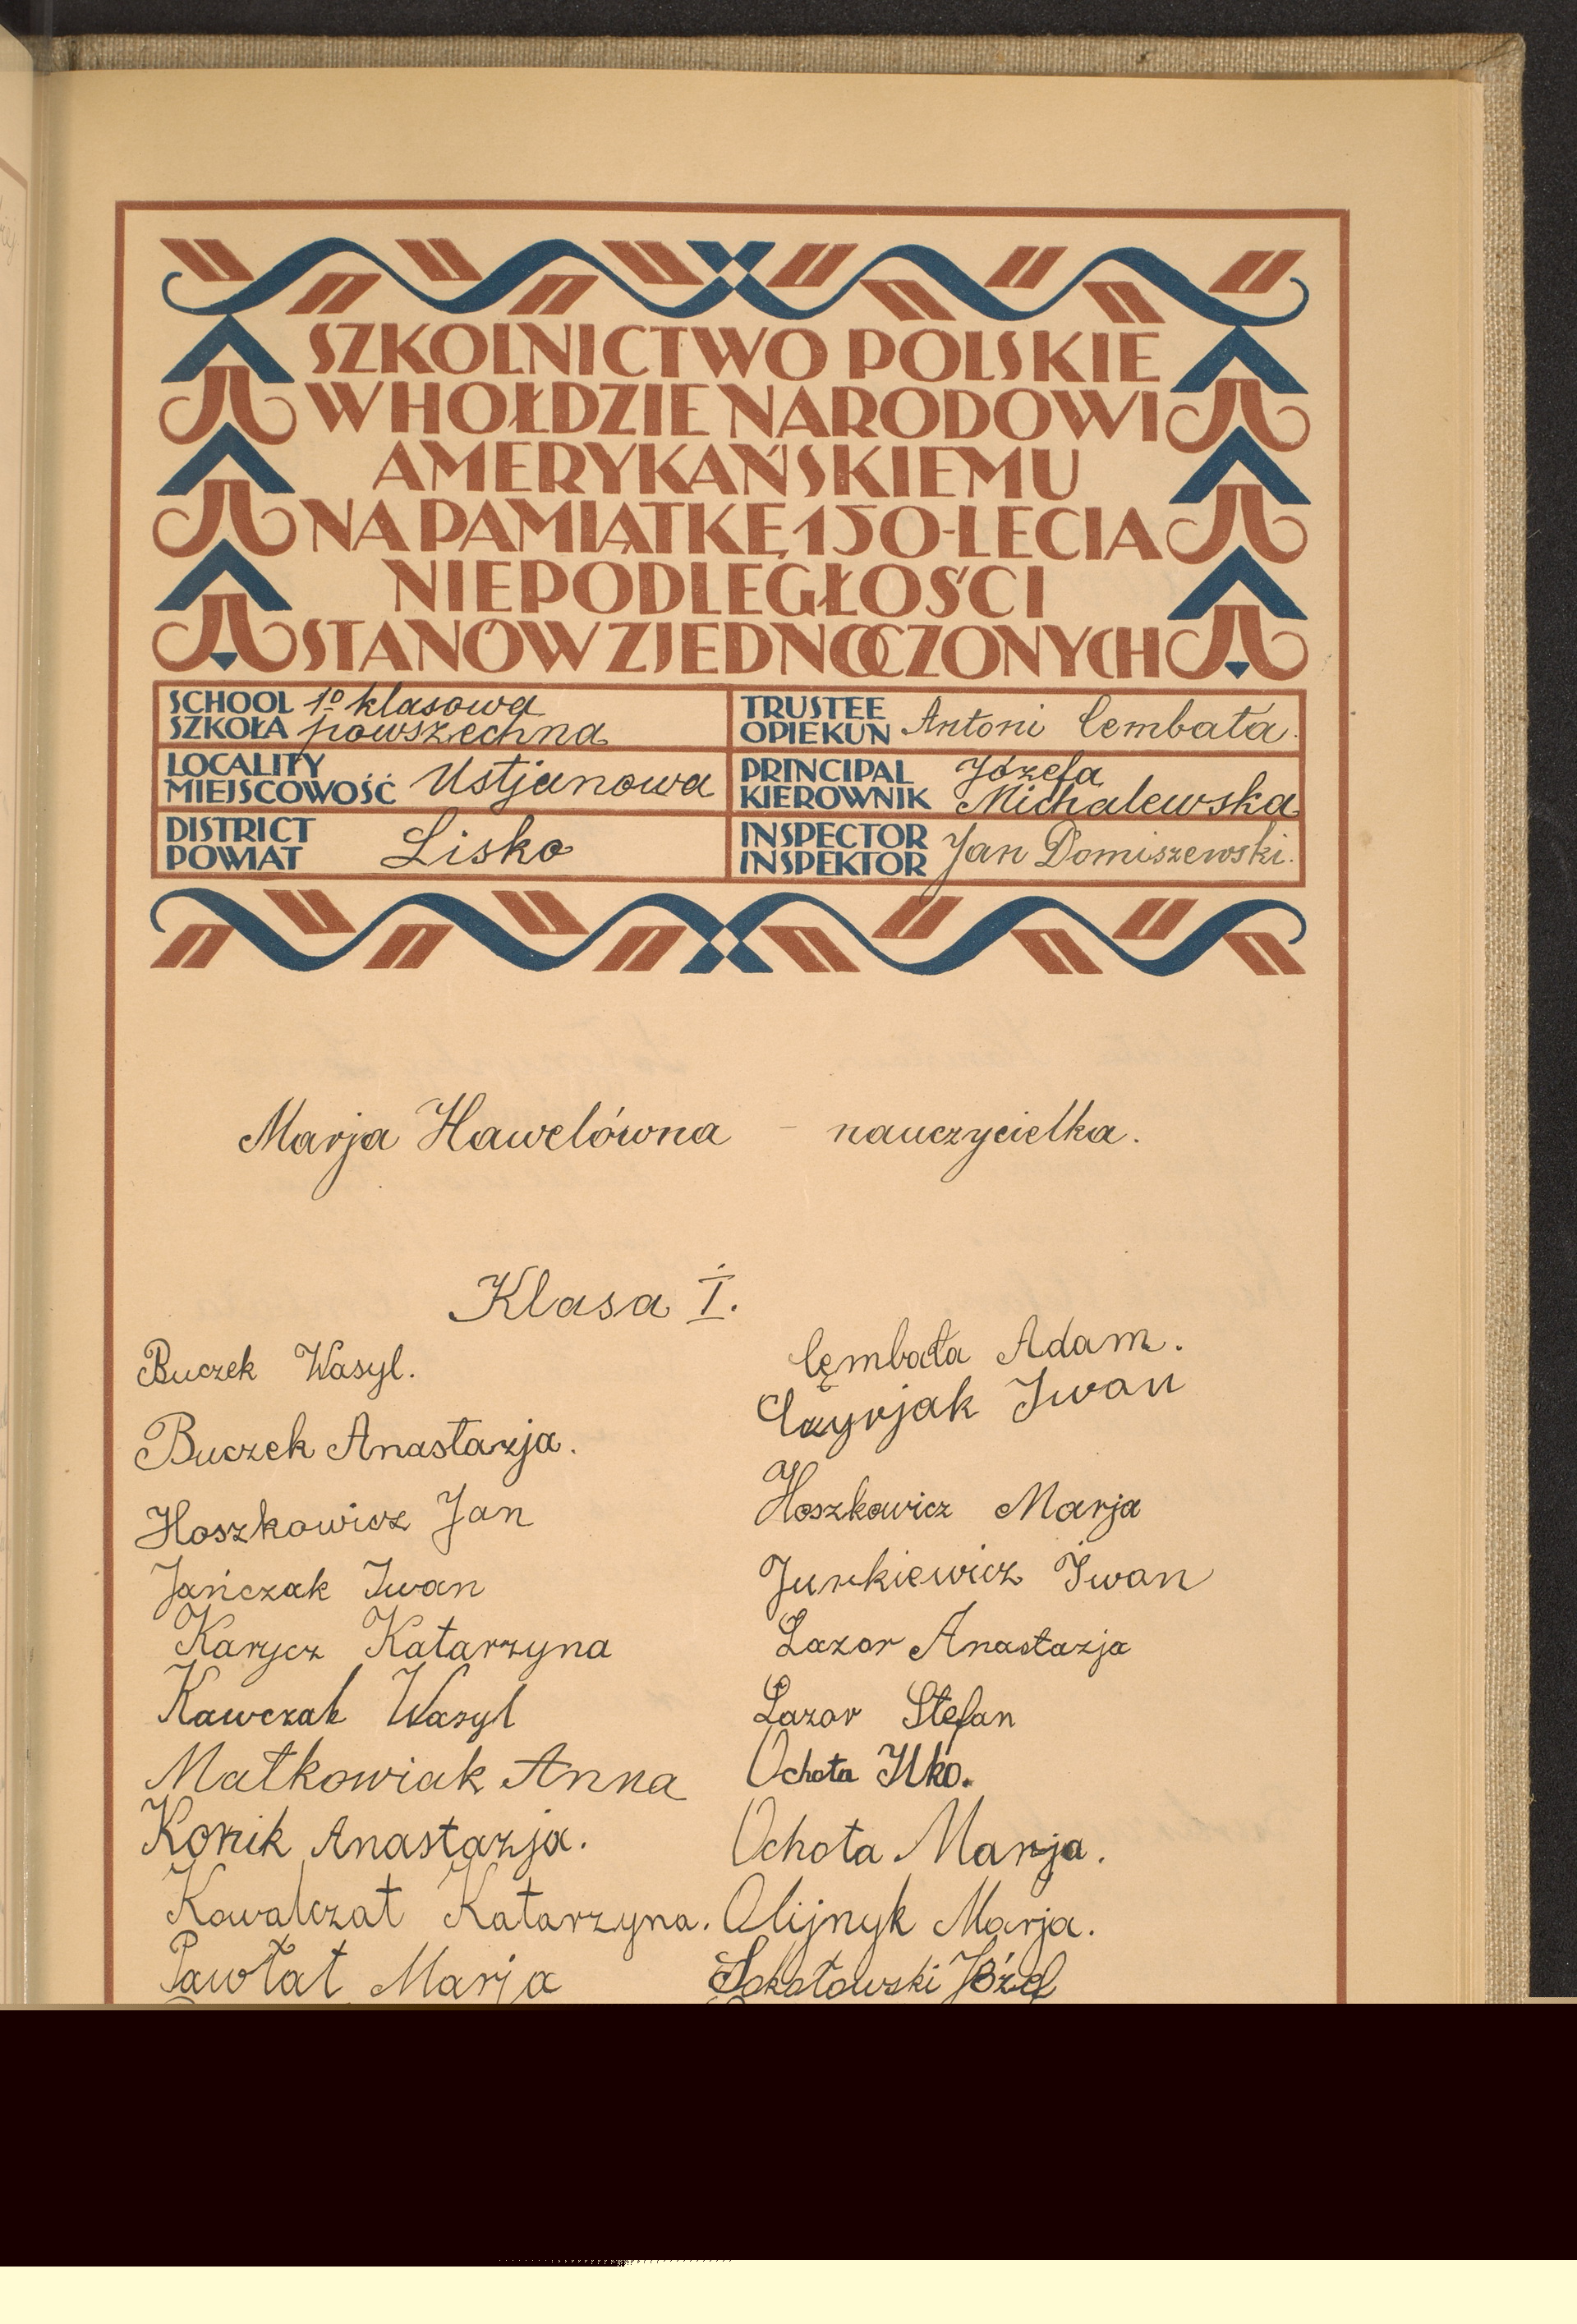 SZKOLNICTWO POLSKIE
W HOŁDZIE NARODOWI
AMERYKAŃSKIEMU
NA PAMIĄTKĘ 150-LECIA
NIEPODLEGŁOŚCI
STANÓW ZJEDNOCZONYCH
SCHOOL
SZKOŁA
1º klasowa
powszechna
TRUSTEE
OPIEKUN
Antoni Cembała.
LOCALITY
MIEJSCOWOŚĆ
Ustjanowa
PRINCIPAL
KIEROWNIK
Józefa
Michalewska
DISTRICT
POWIAT
Lisko
INSPECTOR
INSPEKTOR
Jan Domiszewski.
Marja Hawelówna - nauczycielka.
Klasa I.
Buczek Wasyl.
Buczek Anastazja.
Hoszkowicz Jan
Jańczak Iwan
Karycz Katarzyna
Kawczak Wasyl
Małkowiak Anna
Konik Anastazja.
Kowalczat Katarzyna.
Pawłat Marja
Cęmbała Adam.
Czyrjak Iwan
Hoszkowicz Marja
Jurkiewicz Iwan
Łazor Anastazja
Łazor Stefan
Ochota Ilko.
Ochota Marja.
Olijnyk Marja.
Sokołowski Józef